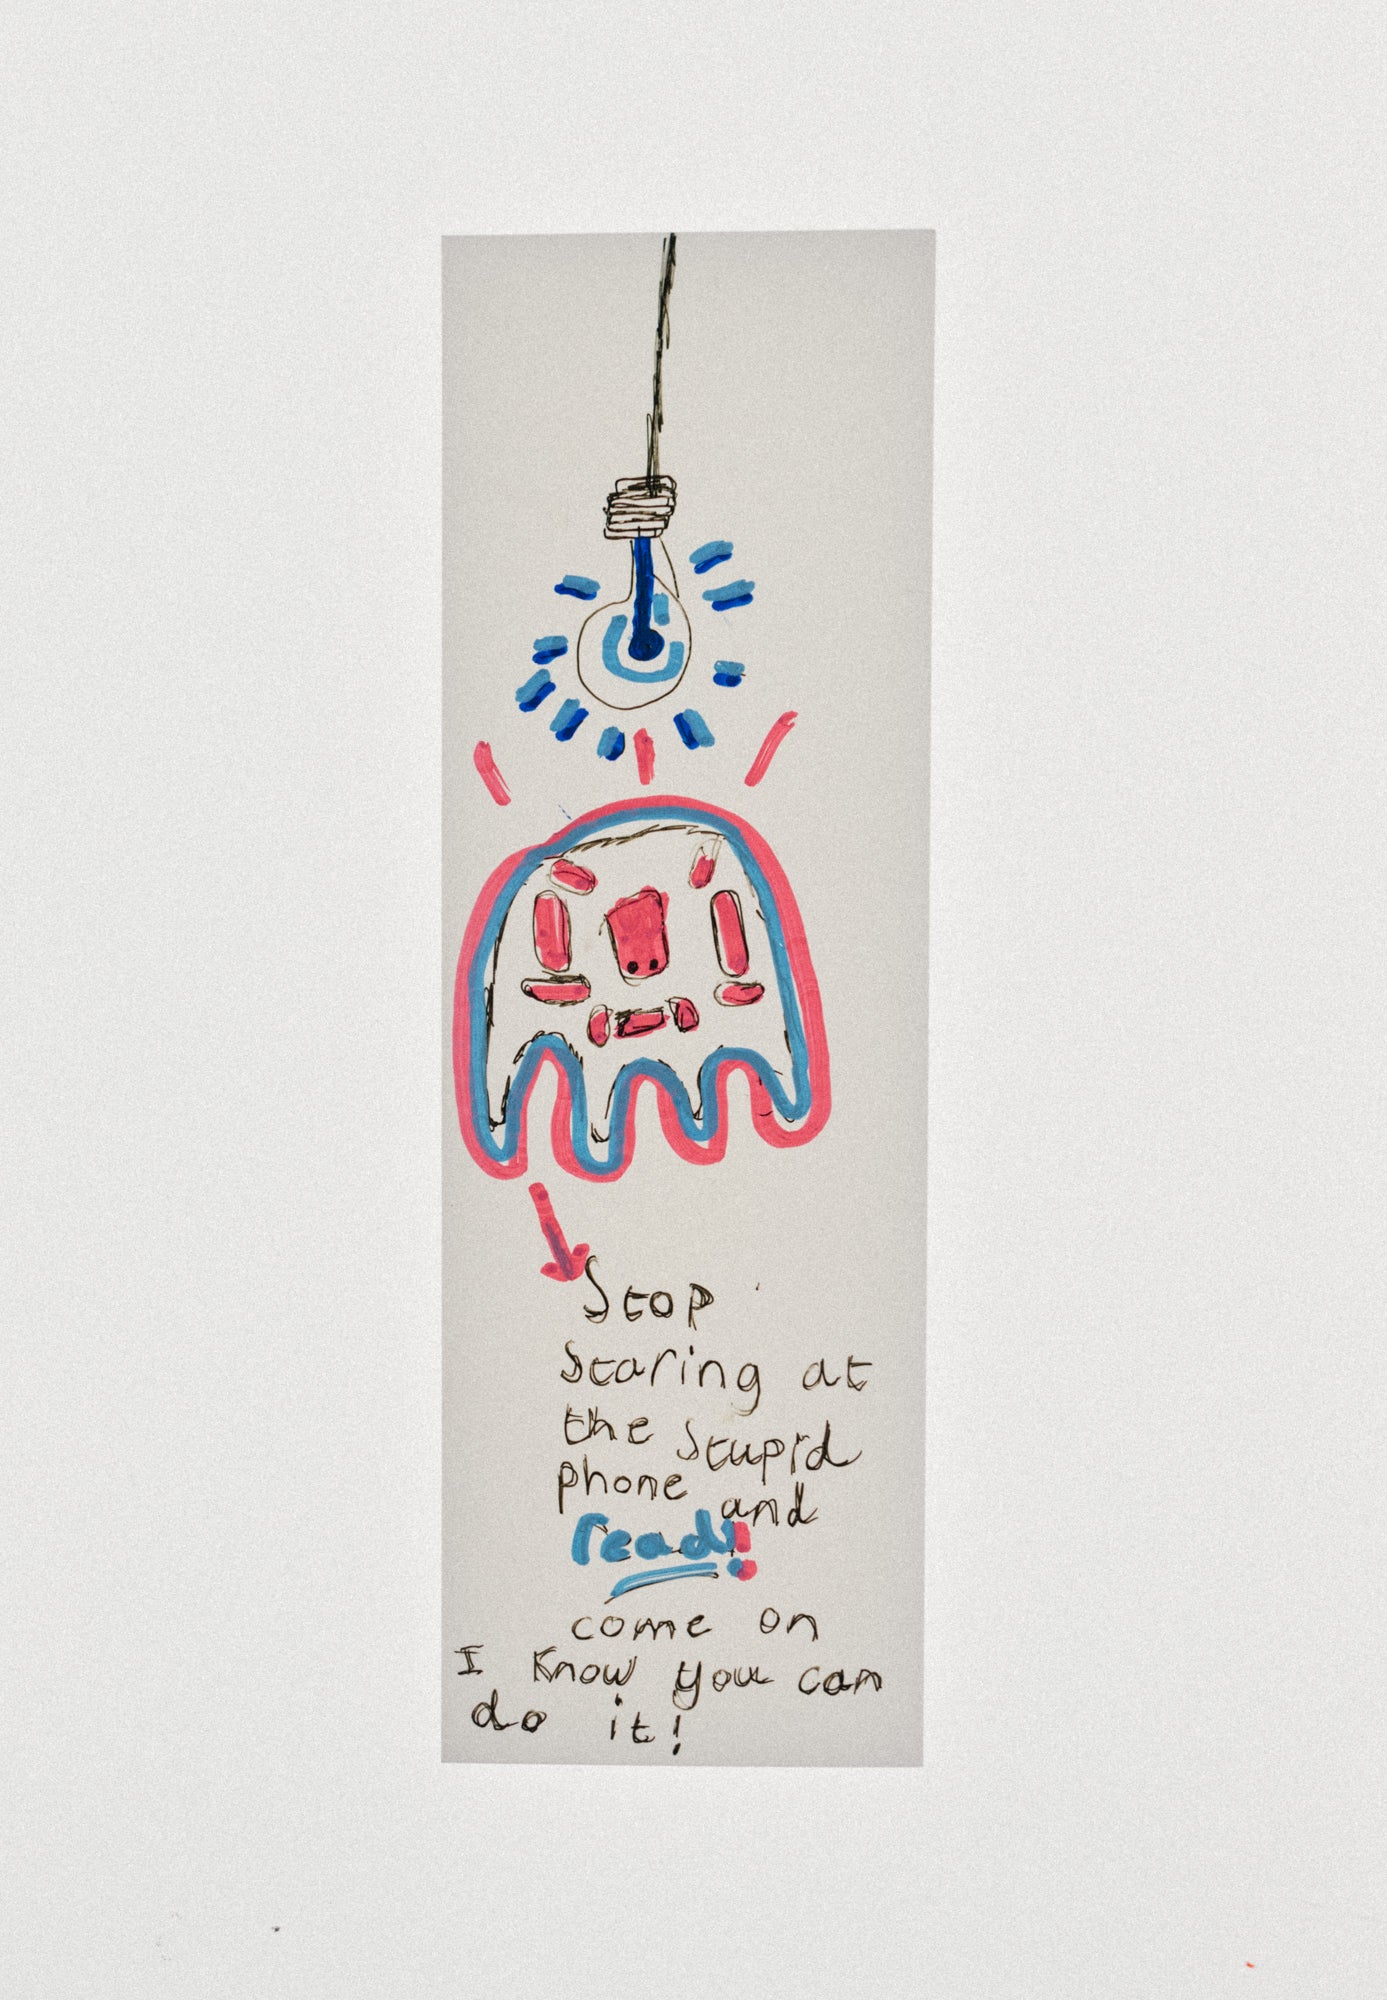 Stop
staring at
the stupid
phone and
read!
come on
I know you can
do it!